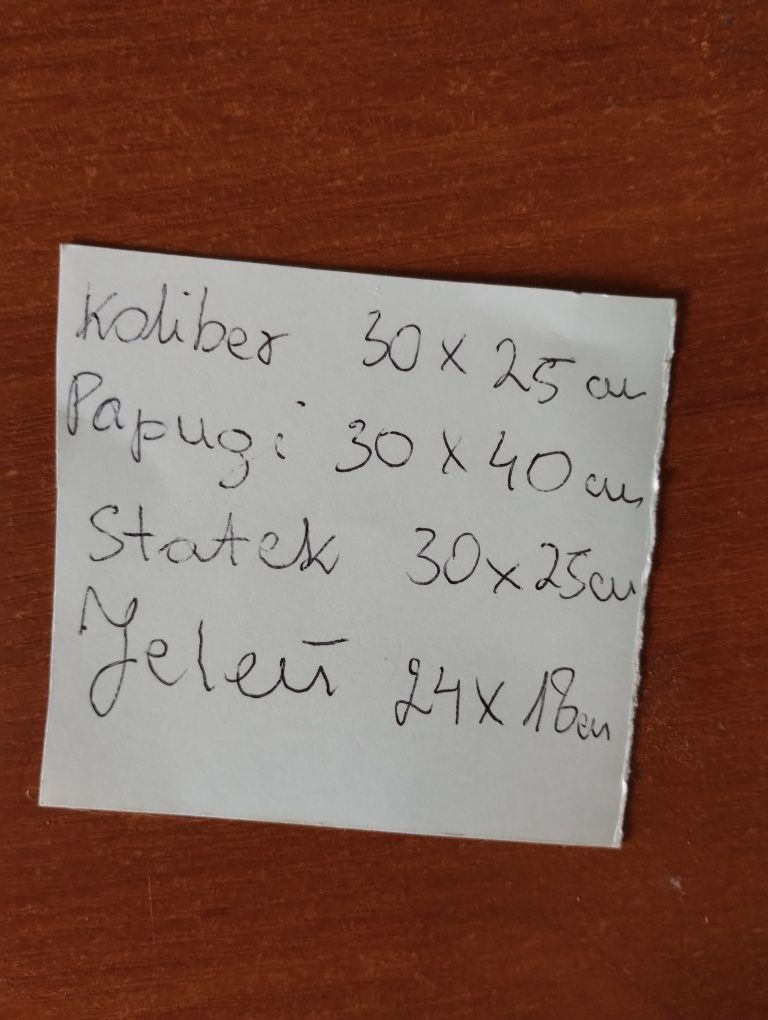 Koliber 30 x 25 cm
Papugi 30 x 40 cm
Statek 30 x 25 cm
Jeleń 24 x 18 cm